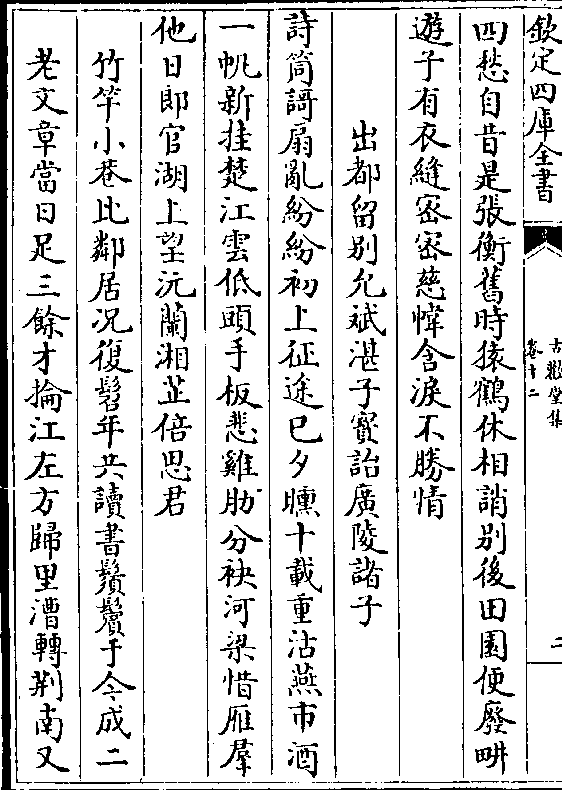 欽定四庫全書
古歡堂集
卷十二
二
四愁自昔是張衡舊時猿鶴休相誚别後田園便廢畊
遊子有衣縫宻宻慈幃含淚不勝情
出都留别允斌湛子寳詒廣陵諸子
詩筒謌扇亂紛紛初上征途已夕曛十載重沽燕市酒
一帆新挂楚江雲低頭手板悲雞肋分袂河梁惜雁羣
他日郎官湖上望沅蘭湘芷倍思君
竹竿小巷比鄰居况復髫年共讀書鬚鬢于今成二
老文章當日足三餘才掄江左方歸里漕轉荆南又